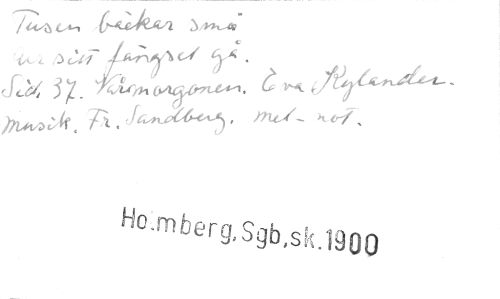 Tusen bäckar små
ur sitt fängsel gå.
Sid. 37. Vårmorgonen. Eva Kylander.
Musik. Fr. Sandberg. mel-not.
Ho.mberg,Sgb,sk.1900